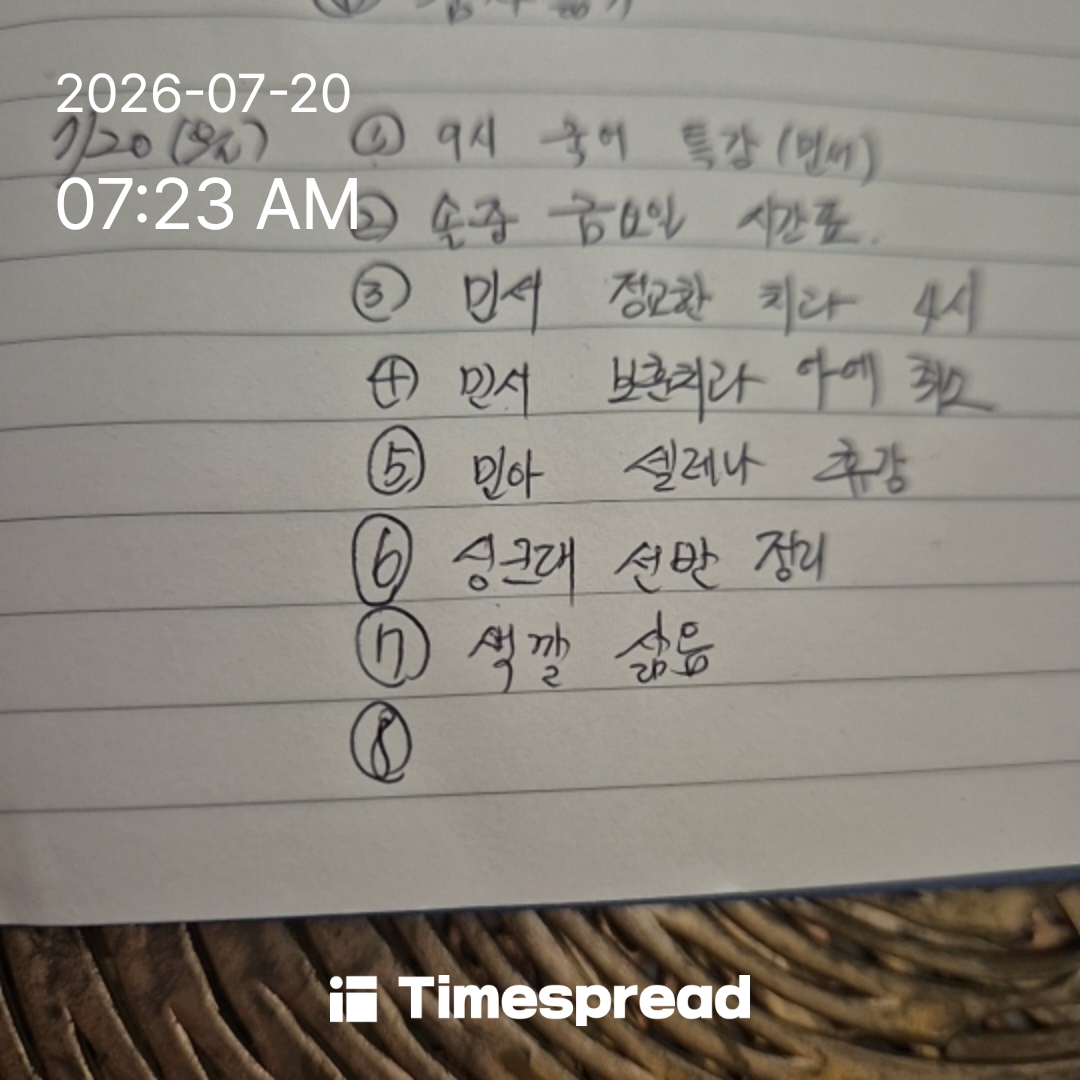 2026-07-20
7/20 (월) ① 9시 국어 특강 (민서)
07:23 AM
② 손중 금요일 시간표.
③ 민서 정교한 치과 4시
④ 민서 보훈치과 아예 취소
⑤ 민아 셀레나 휴강
⑥ 싱크대 선반 정리
⑦ 색깔 삶음
⑧
Timespread